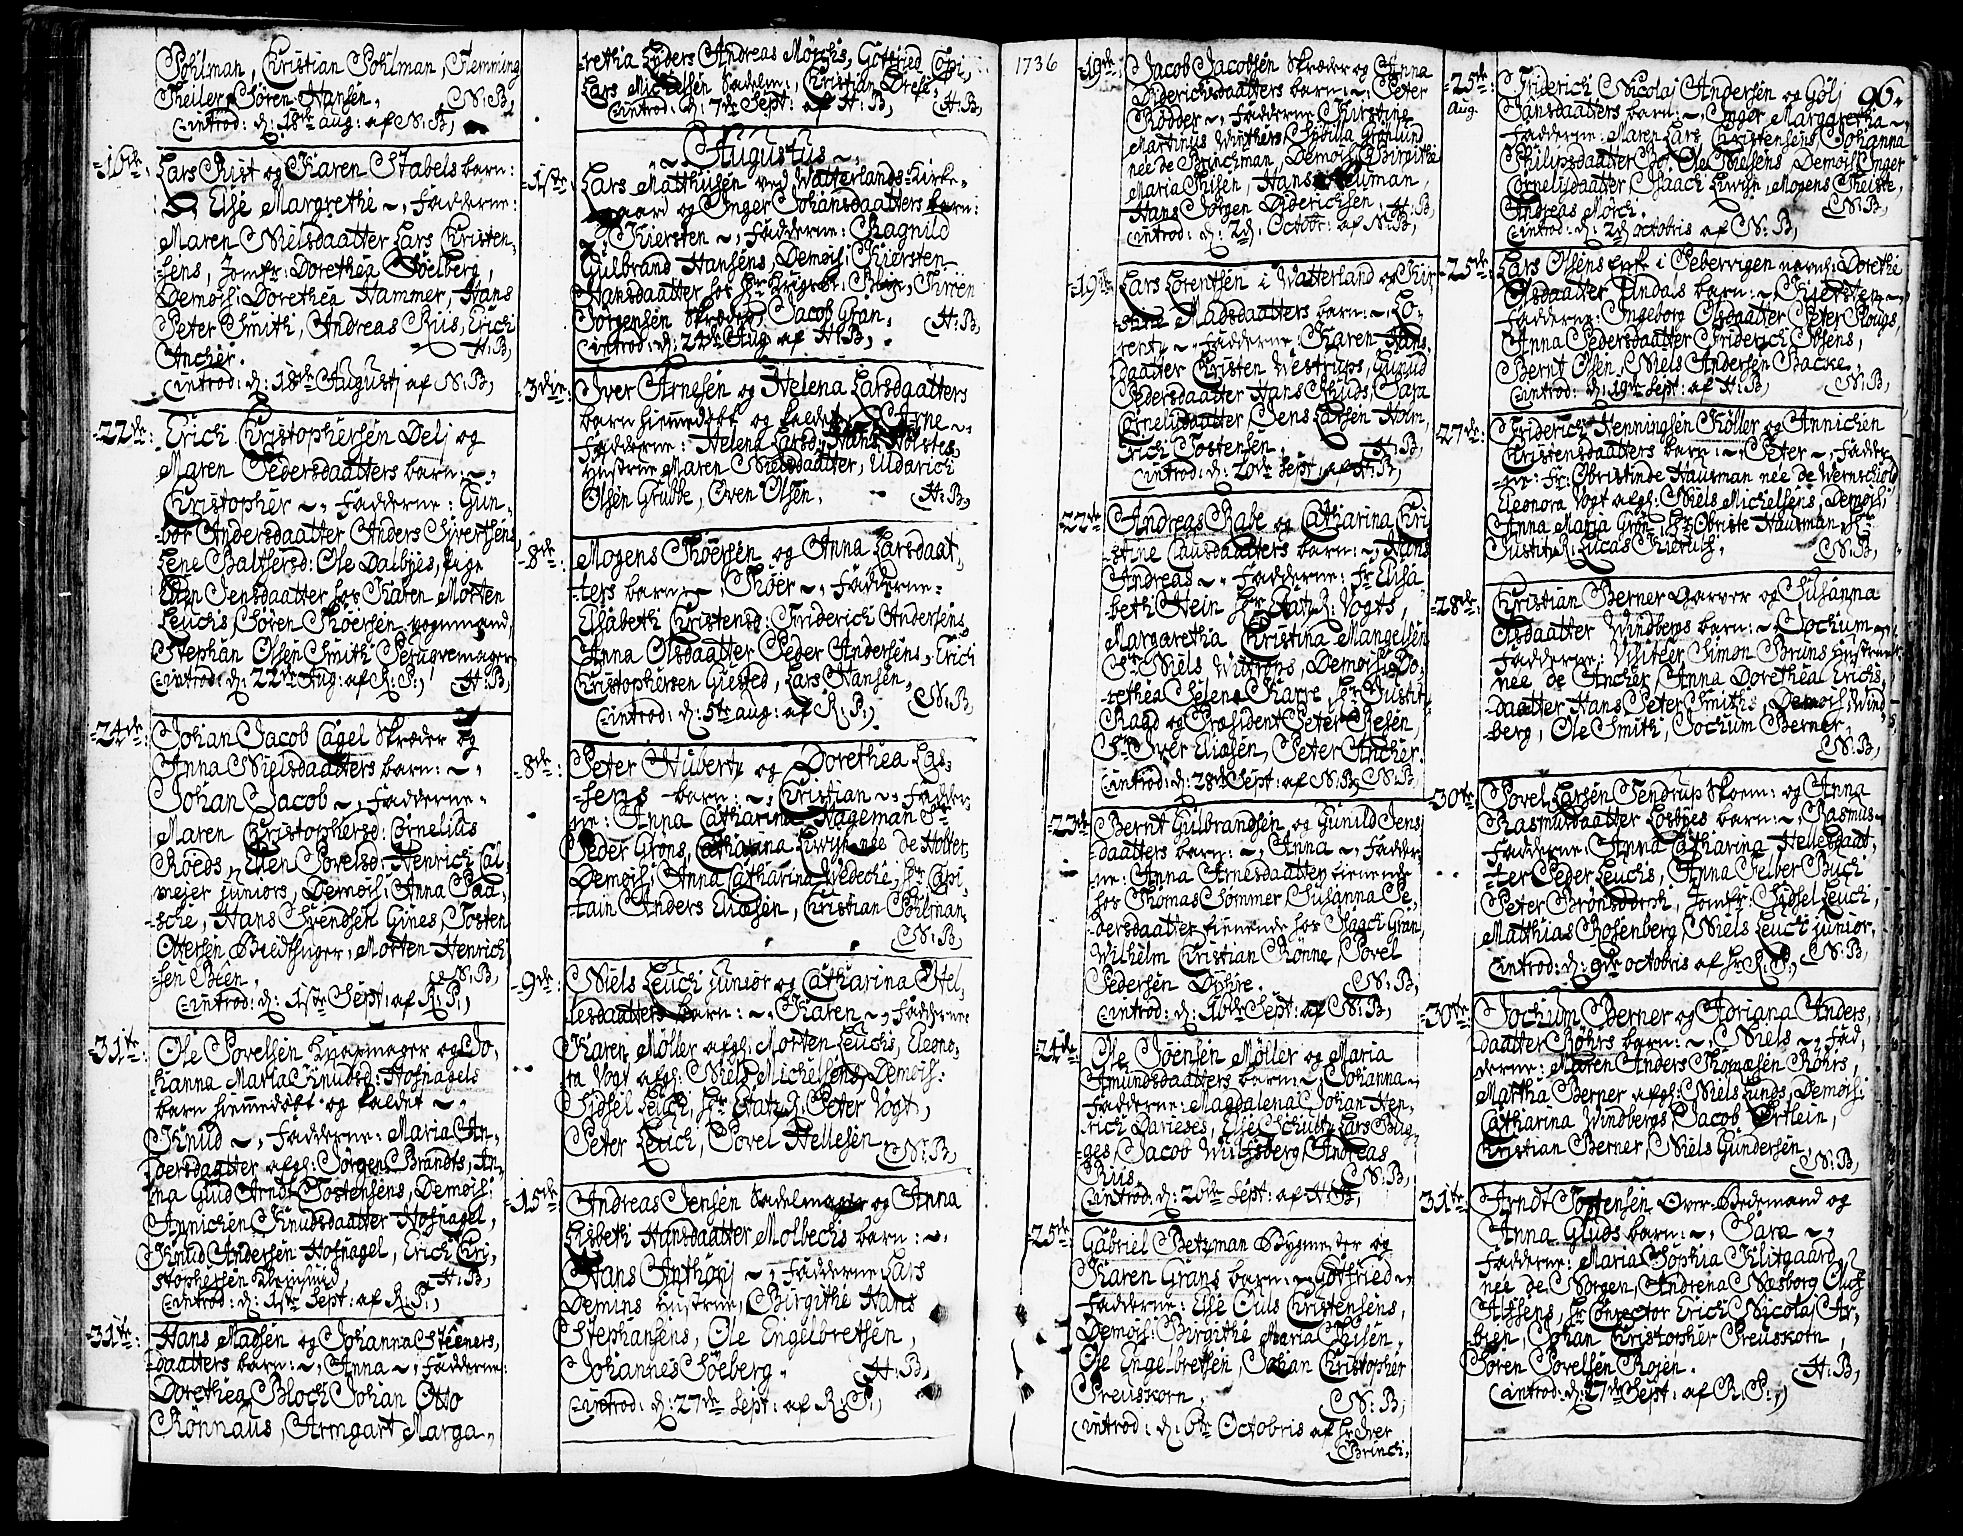 Pohlman, Christian Pohlman, Flemming
Theiler, Sören Hansen. N:B,
introd: d: 18de aug: af N:B,
16de Lars Rust og Karen Stabels barn:
Else Margrethe ~, Fadderne:
Maren Nielsdaatter Lars Christen-
sens, Jomfr: Dorethea Söelberg,
Demois: Dorethea Hammer, Hans
Peter Smith, Andreas Riis, Erich
Ancher. H:B,
introd: d: 18de Augustj af N:B,
22de: Erich Christophersen Delj og
Maren Pedersdaatters barn: ~,
Christopher ~, Fadderne: Gun-
bor Andersdaatter Anders Sivertsens
Lene Balthersd: Ole Dalbyes, Pige
Ellen Jensdaatter hos Karen Morten
Leuchs, Sören Thöersen vognmand,
Stephan Olssen Smith Peruqvemager
introd: d: 22de Aug: af R:P:, H:B,
24de: Johan Jacob Cagel Skræder og
Anna Nielsdaatters barn: ~,
Johan Jacob ~, Fadderne:
Maren Christophersd: Cornelias
Röeds, Ellen Povelsd: Henrich Cal-
mejer juniors, Demois: Anna Paa-
sche, Hans Svendsen Gines, Tosten
Ottersen, Morten Henrich
sen Been, N:B,
introd: d: 1ste Sept: af R:P:,
31te: Ole Povelsen Knapmager og Jo-
hanna Maria Knudsd: Hofnagels
barn hiemmedöbt og kaldet ~,
Knud ~, Fadderne: Maria An-
dersdaatter afgl: Jörgen Brandts, An-
na Glud Arndt Tostensens, Demois:
Annichen Knudsdaatter Hofnagel,
Knud Andersen Hofnagel, Erich Chri-
stophersen H:B,
introd: d: 1ste Sept: af R:P:,
31te: Hans Madsen og Johanna Steeners-
daatters barn: ~, Anna ~, Fadderne:
Dorethea Bloch Johan Otto
Rönnaus, Armgart Marga-
retha Lyders Andreas Mörchs, Gotfried Topi,
Lars Michelsen Sadelm:, Christian Drese,
introd: d: 7de Sept: af H:B, H:B,
Augustus ~,
1ste Lars Matthisen ved Watterlands Kirke-
gaard og Inger Johansdaatters barn:
Kiersten ~, Fadderne: Ragnild
Gulbrand Hansens, Demois: Kiersten
Hansdaatter hos Sr Krigsr: Blix, Thröen
Jörgensen Skræder, Jacob Grön. H:B,
introd: d: 22de Aug: af H:B,
3die Iver Arnesen og Helena Larsdaatters
barn hiemmedöbt og kaldet Arne ~
Fadderne: Helena Larsd: Hans Holstes
hustrue Maren Nielsdaatter, Uldarich
Olsen Grubbe, Even Olsen. H:B,
8de: Mogens Thöersen og Anna Larsdaat-
ters barn: ~, Thöer ~, Fadderne:
Elsabeth Christensd: Friderich Andersens
Anna Olsdaatter Peder Andersens, Erich
Christophersen Giessed, Lars Hansen,
introd: d: 5te aug: af R:P:, N:B,
8de: Peter Hubertz og Dorethea Las-
sens barn: ~, Christian ~, Fadder-
ne: Anna Catharina Hageman Sr
Peder Gröns, Catharina Lwisk nee de Holter,
Demois: Anna Catharina Wedeche, Sr Capi-
tain Anders Eliæsen, Christian Pohlman.
N:B,
9de: Niels Leuch junior og Catharina Hel-
lesdaatters barn: ~, Karen ~, Fadderne:
Karen Möller afgl: Morten Leuchs, Eleono-
ra Vogt afgl: Niels Michelsens, Demois:
Sidsel Leuch, Sr Etatz R: Peter Vogt,
Peter Leuch, Povel Hellesen N:B,
15de: Andreas Jensen Sadelmager og Anna
Lisbeth Hansdaatter Molbechs barn: ~,
Hans Anthonj ~, Fadderne: Lars
Demins hustrue, Birgithe Hans
Stephansens, Ole Engelbretsen,
Johannes Söeberg. H:B,
introd: d: 27de Sept: af R:P:,
1736
19de: Jacob Jacobsen Skræder og Anna
Diderichsdaatters barn: ~, Peter
Rodder ~, Fadderne: Christine
Martinus Winthers, Sybilla Grönlund
nee de Brinchman, Demois: Birgithe
Maria Thisen, Hans Neuman,
Hans Jörgen Diderichsen, H:B,
introd: d: 2d. Octobr: af N:B,
19de: Lars Lorentsen i Watterland og Kir-
stine Madsdaatters barn: ~, Lo-
rentz ~, Fadderne: Karen Hans-
daatter Christen Westrups, Gunild
Pedersdaatter Hans Thuds, Sara
Cornelisdaatter, Jens Larsen Holm,
Erich Tostensen. H:B,
introd: d: 20de Sept: af H:B,
22de Andreas Rabe og Catharina Chri-
stine Clausdaatters barn: ~, Hans
Andreas ~, Fadderne: Fr Elisa-
beth Stein Sr Etatz R: Vogts,
Margaretha Christina Mangelsen
Sr Niels Wittrups, Demois: Do-
rethea Helena Karre, Sr Justitz
Raad og Præsident Peter Resen,
Sr Iver Eliæsen, Peter Ancher.
introd: d: 28de Sept: af N:B, N:B,
23de: Bernt Gulbrandsen og Gunild Jens-
daatters barn: ~, Anna ~, Fadder-
ne: Anna Arnesdaatter tienende
hos Thomas Sommer, Susanna Pe-
dersdaatter tienende hos Isaach Grön,
Wilhelm Christian Rönne, Povel
Pedersen Dysse. N:B,
introd: d: 16de Sept: af N:B,
24de Ole Jöensen Möller og Maria
Amundsdaatters barn: ~, Johanna ~,
Fadderne: Magdalena Johan Hen-
rich Darieses, Else Schubz Lars Bug-
ges, Jacob Wulfsberg, Andreas
Riis. N:B,
introd: d: 26de Sept: af H:B,
25de: Gabriel Betzman Bygmester og
Karen Gräns barn: ~, Gotfried ~,
Fadderne: Else Culs Christensens,
Demois: Birgithe Maria Thisen,
Ole Engelbretsen, Johan Christopher
Preuskorn. N:B,
introd: d: 6te Octobris af Sr Iver
Brinch.
96.
25de: Aug. Friderich Nicolaj Andersen og Gölj
Jansdaatters barn: ~, Inger Margaretha ~,
Fadderne: Maren Lars Christensens, Johanna
Philipsdaatter Ole Nielsens, Demois: Inger
Cornelisdaatter, Isaach Lwisk, Mogens Theiste,
Andreas Mörch. N:B,
introd: d: 2d octobris af N:B,
25de: Lars Olsens Enke i Pebervigen navnl: Dorethe
Olsdaatter Lindals barn: ~, Kiersten ~,
Fadderne: Ingeborg Olsdaatter Peter Plougs,
Anna Pedersdaatter Friderich Ibsens,
Bernt Olsen, Niels Andersen Backe.
introd: d: 19de Sept: af H:B, N:B,
27de: Friderich Henningsen Möller og Annichen
Christensdaatters barn: ~, Peter ~, Fadder-
ne: Fr: Obristinde Hausman nee de Wernschiold
Eleonora Vogt afgl: Niels Michelsens, Demois:
Anna Maria Grön, Sr Obriste Hausman, Sr
Justitz R: Lucas Kierulf. N:B,
28de: Christian Berner Garver og Susanna
Olsdaatter Windbergs barn: ~, Jochum ~,
Fadderne: Simon Bruns hustrue
nee de Ancher, Anna Dorethea Erichs-
daatter Hans Peter Smiths, Demois: Wind-
berg, Ole Smith, Jochum Berner.
N:B,
30te: Povel Larsen Tendrup Skoem: og Anna
Rasmusdaatter Losbyes barn: ~, Rasmus ~
Fadderne: Anna Catharina Hellesdaat-
ter Peder Leuchs, Anna Felber Buch
Peter Brönsdorphs, Jomfr: Sidsel Leuch,
Matthias Rosenberg, Niels Leuch junior.
introd: d: 9de octobris af Sr R:P:, N:B,
30te: Jochum Berner og Adriana Anders-
daatter Röhrs barn: ~, Niels ~, Fad-
derne: Maren Anders Thomæsen Röhrs,
Martha Berner afgl: Niels Lunds, Demois:
Catharina Windbergs, Jacob Ertlein,
Christian Berner, Niels Gundersen.
N:B,
31te: Arndt Tostensen Over-Bedemand og
Anna Gluds barn: ~, Sara ~,
Fadderne: Maria Sophia Klitgaard
nee de Norgen, Andrena Næsborg Oluf
Alssens, Sr Conrector Erich Nicolaj Ar-
bien, Johan Christopher Preuskorn,
Sören Povelsen Rosen. H:B,
introd: d: 27de Sept: af R:P:,